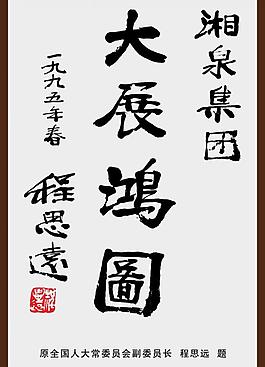 湘泉集团
大展鸿圖
一九九五年春
程思遠
原全国人大常委员会副委员长 程思远 题